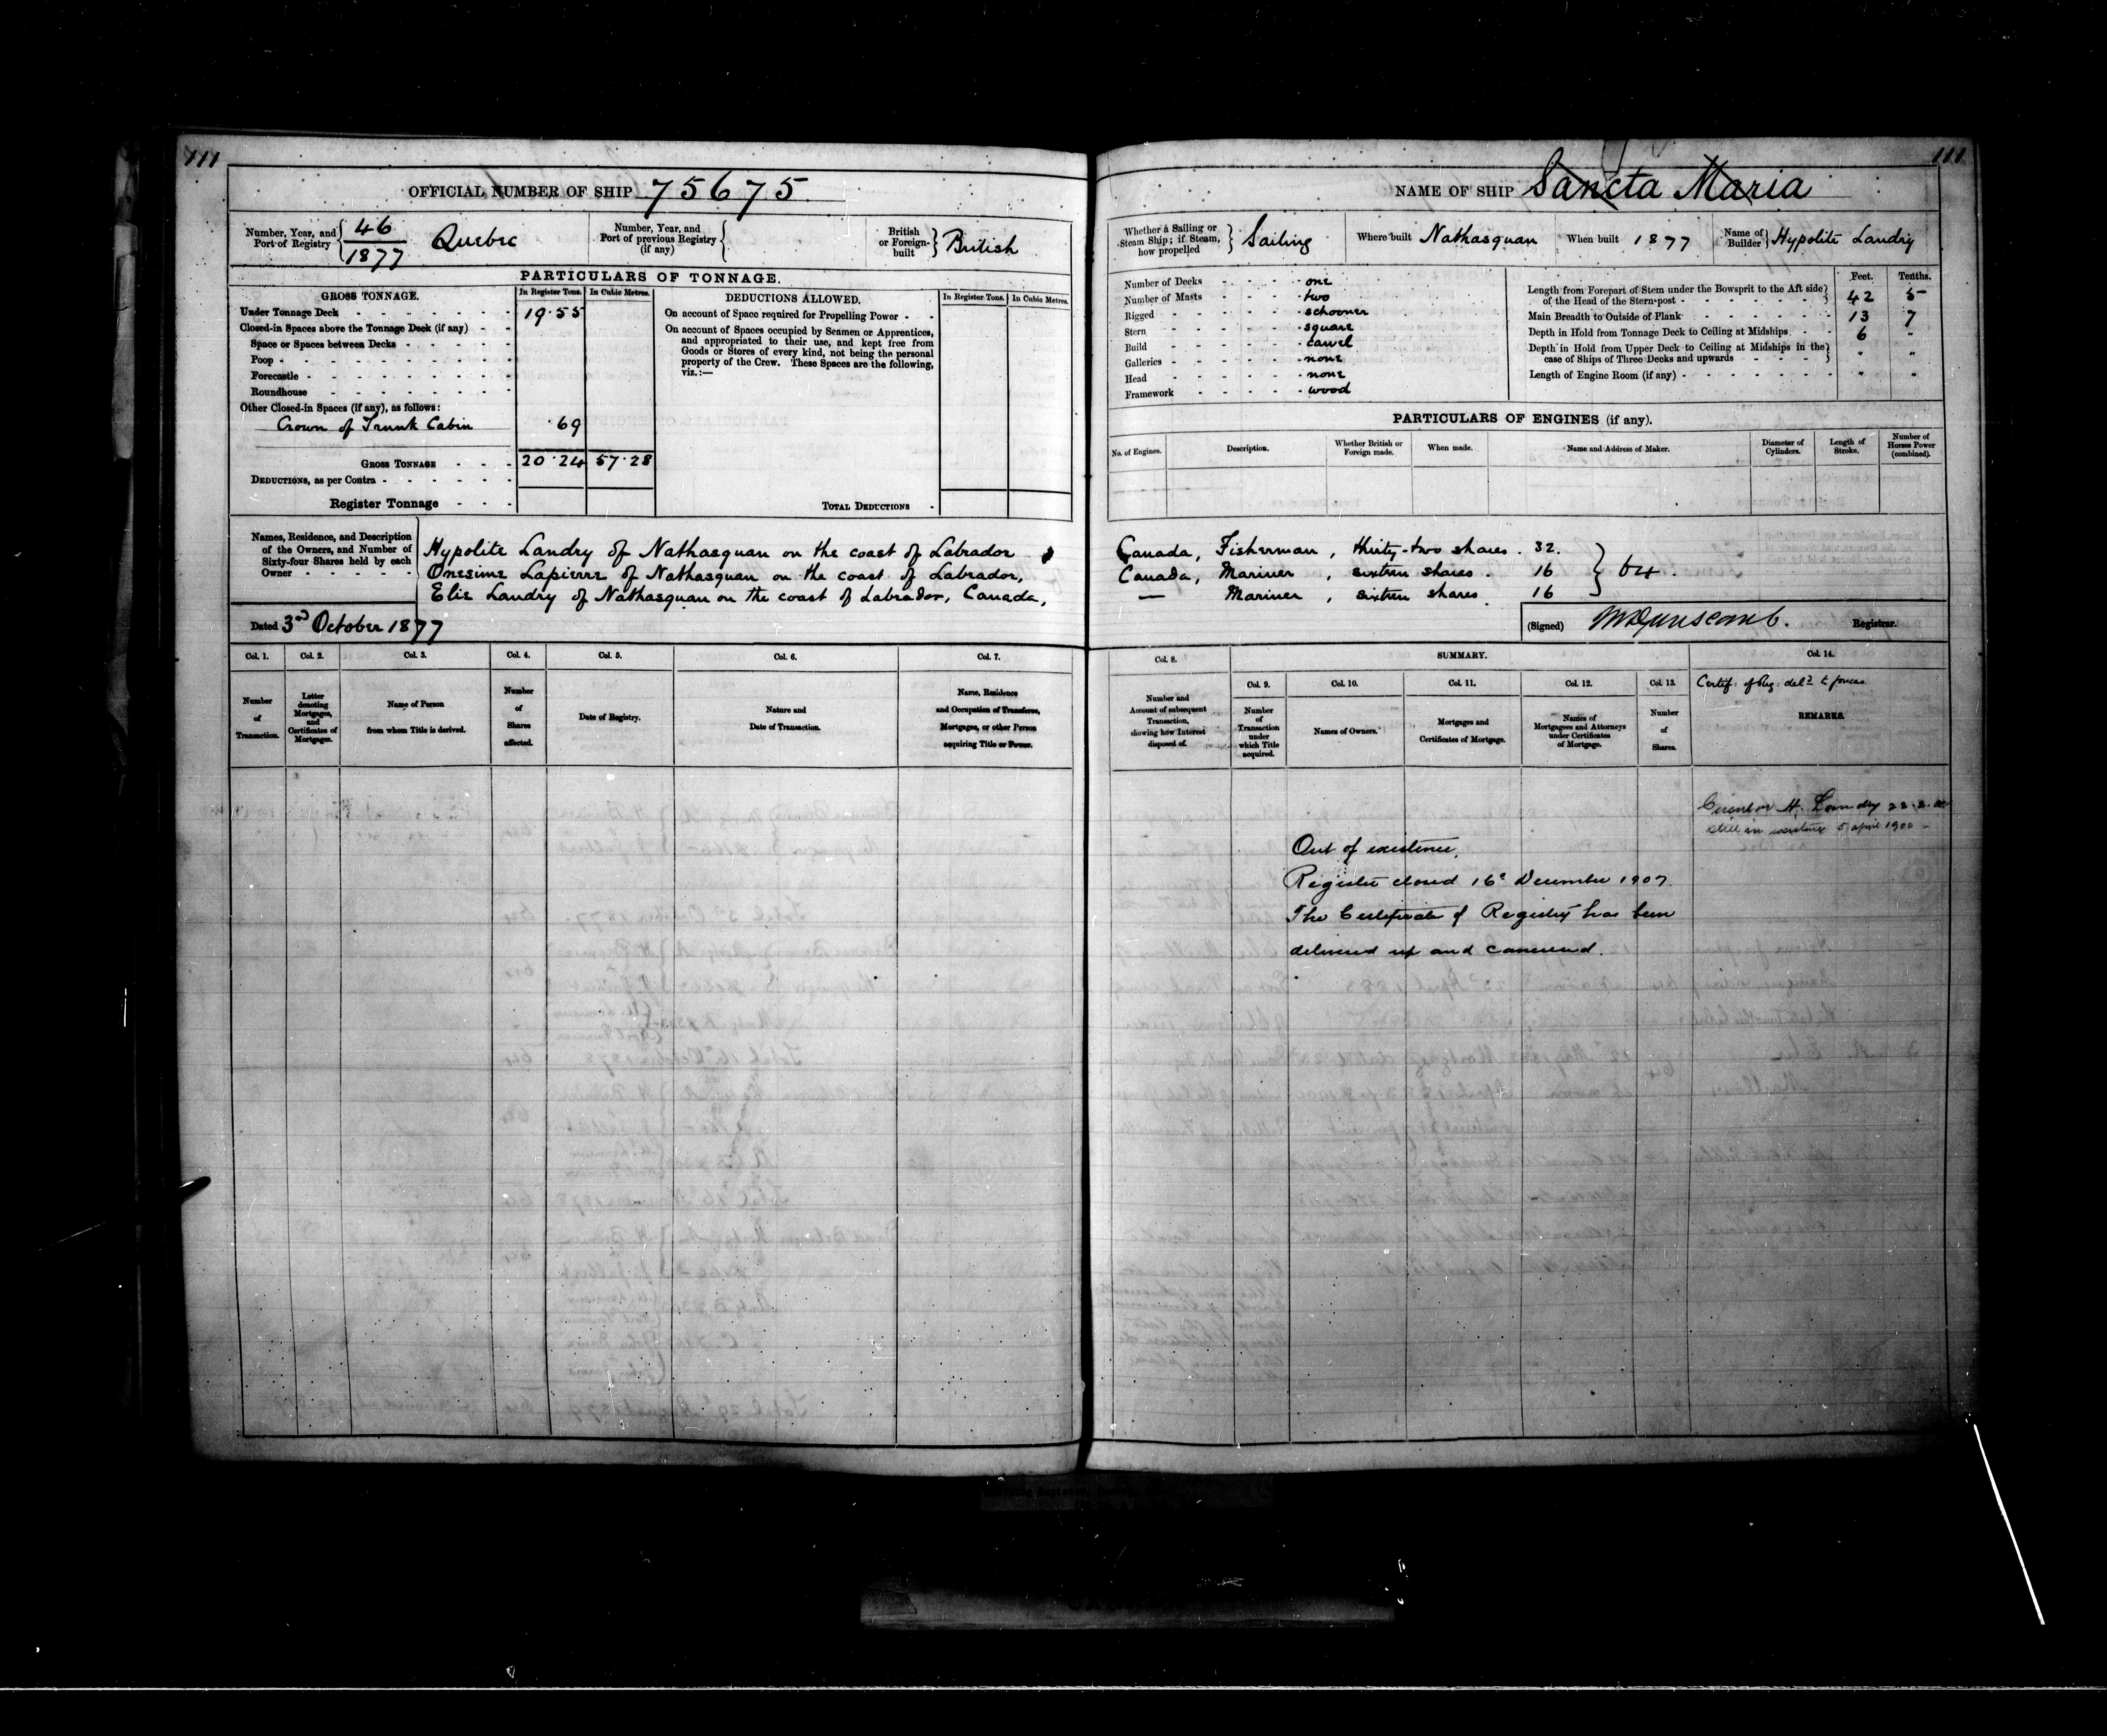 111
OFFICIAL NUMBER OF SHIP 75675
Number, Year, and Port of Registry 46/1877 Quebec
Number, Year, and Port of previous Registry (if any)
British or Foreign-built British
PARTICULARS OF TONNAGE.
GROSS TONNAGE. In Register Tons. In Cubic Metres.
Under Tonnage Deck 19.55
Closed-in Spaces above the Tonnage Deck (if any)
Space or Spaces between Decks
Poop
Forecastle
Roundhouse
Other Closed-in Spaces (if any), as follows:
Crown of Trunk Cabin .69
GROSS TONNAGE 20.24 57.28
DEDUCTIONS, as per Contra
Register Tonnage
DEDUCTIONS ALLOWED. In Register Tons. In Cubic Metres.
On account of Space required for Propelling Power
On account of Spaces occupied by Seamen or Apprentices,
and appropriated to their use, and kept free from
Goods or Stores of every kind, not being the personal
property of the Crew. These Spaces are the following,
viz.:—
TOTAL DEDUCTIONS
Names, Residence, and Description
of the Owners, and Number of
Sixty-four Shares held by each
Owner
Hypolite Landry of Nathasquan on the coast of Labrador
Onesime Lapierre of Nathasquan on the coast of Labrador,
Elie Landry of Nathasquan on the coast of Labrador, Canada,
Dated 3rd October 1877
Col. 1. Col. 2. Col. 3. Col. 4. Col. 5. Col. 6. Col. 7.
Number of Transaction.
Letter denoting Mortgages, and Certificates of Mortgages.
Name of Person from whom Title is derived.
Number of Shares affected.
Date of Registry.
Nature and Date of Transaction.
Name, Residence and Occupation of Transferee, Mortgagee, or other Person acquiring Title or Power.
111
NAME OF SHIP Sancta Maria
Whether a Sailing or Steam Ship; if Steam, how propelled Sailing
Where built Nathasquan
When built 1877
Name of Builder Hypolite Landry
Number of Decks one
Number of Masts two
Rigged schooner
Stern square
Build carvel
Galleries none
Head none
Framework wood
Feet. Tenths.
Length from Forepart of Stem under the Bowsprit to the Aft side
of the Head of the Stern-post 42 5
Main Breadth to Outside of Plank 13 7
Depth in Hold from Tonnage Deck to Ceiling at Midships 6 -
Depth in Hold from Upper Deck to Ceiling at Midships in the
case of Ships of Three Decks and upwards
Length of Engine Room (if any)
PARTICULARS OF ENGINES (if any).
No. of Engines.
Description.
Whether British or Foreign made.
When made.
Name and Address of Maker.
Diameter of Cylinders.
Length of Stroke.
Number of Horses Power (combined).
Canada, Fisherman, thirty-two shares. 32.
Canada, Mariner, sixteen shares. 16
— Mariner, sixteen shares 16
64.
(Signed) Registrar.
Col. 8. SUMMARY. Col. 14.
Col. 9. Col. 10. Col. 11. Col. 12. Col. 13.
Number and Account of subsequent Transaction, showing how Interest disposed of.
Number of Transaction under which Title acquired.
Names of Owners.
Mortgages and Certificates of Mortgage.
Names of Mortgagees and Attorneys under Certificates of Mortgage.
Number of Shares.
Certif. of Reg.
REMARKS.
H. Landry
Still in existence 5 april 1900
Out of existence.
Register closed 16th December 1907.
The Certificate of Registry has been
delivered up and cancelled.